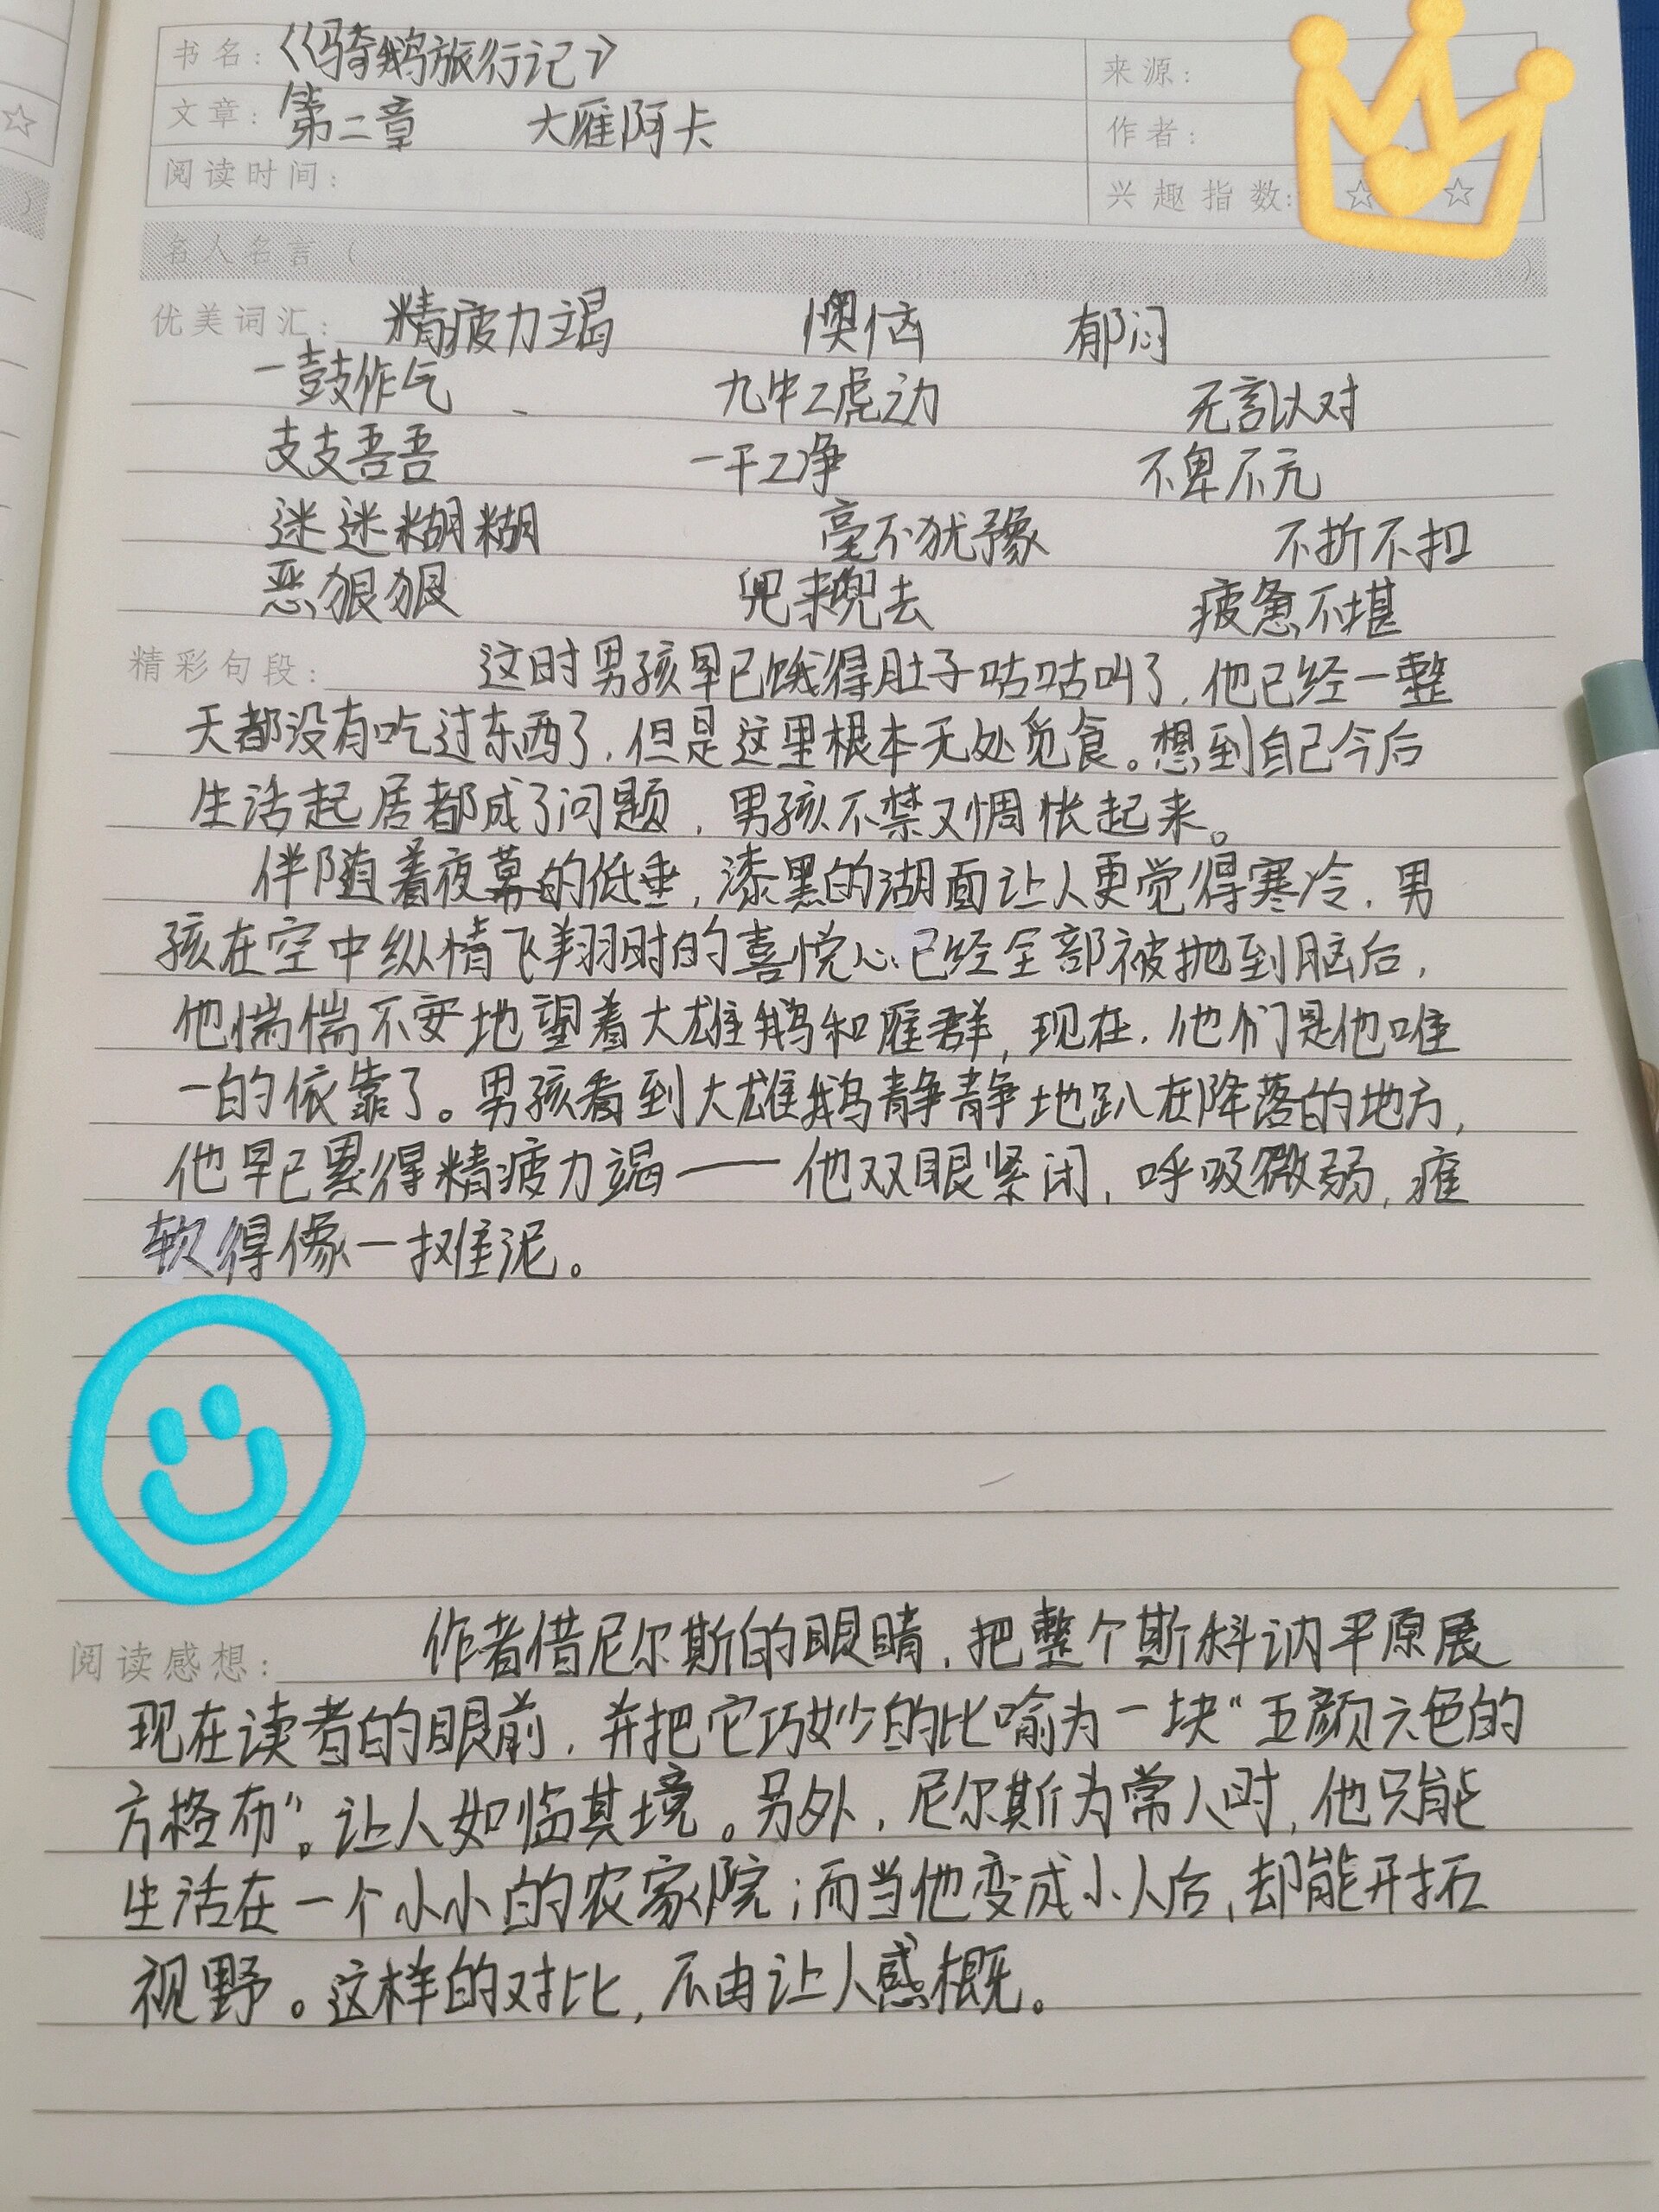 书名：《骑鹅旅行记》 来源：
文章：第二章 大雁阿卡 作者：
阅读时间： 兴趣指数：☆ ☆
名人名言（ ）
优美词汇：精疲力竭 懊恼 郁闷
一鼓作气 九牛二虎之力 无言以对
支支吾吾 一干二净 不卑不亢
迷迷糊糊 毫不犹豫 不折不扣
恶狠狠 兜来兜去 疲惫不堪
精彩句段：这时男孩早已饿得肚子咕咕叫了，他已经一整
天都没有吃过东西了，但是这里根本无处觅食。想到自己今后
生活起居都成了问题，男孩不禁又惆怅起来。
伴随着夜幕的低垂，漆黑的湖面让人更觉得寒冷，男
孩在空中纵情飞翔时的喜悦心已经全部被抛到脑后，
他惴惴不安地望着大雄鹅和雁群，现在，他们是他唯
一的依靠了。男孩看到大雄鹅静静地趴在降落的地方，
他早已累得精疲力竭——他双眼紧闭，呼吸微弱，瘫
软得像一摊泥。
阅读感想：作者借尼尔斯的眼睛，把整个斯科讷平原展
现在读者的眼前，并把它巧妙的比喻为一块“五颜六色的
方格布”。让人如临其境。另外，尼尔斯为常人时，他只能
生活在一个小小的农家院；而当他变成小人后，却能开拓
视野。这样的对比，不由让人感概。